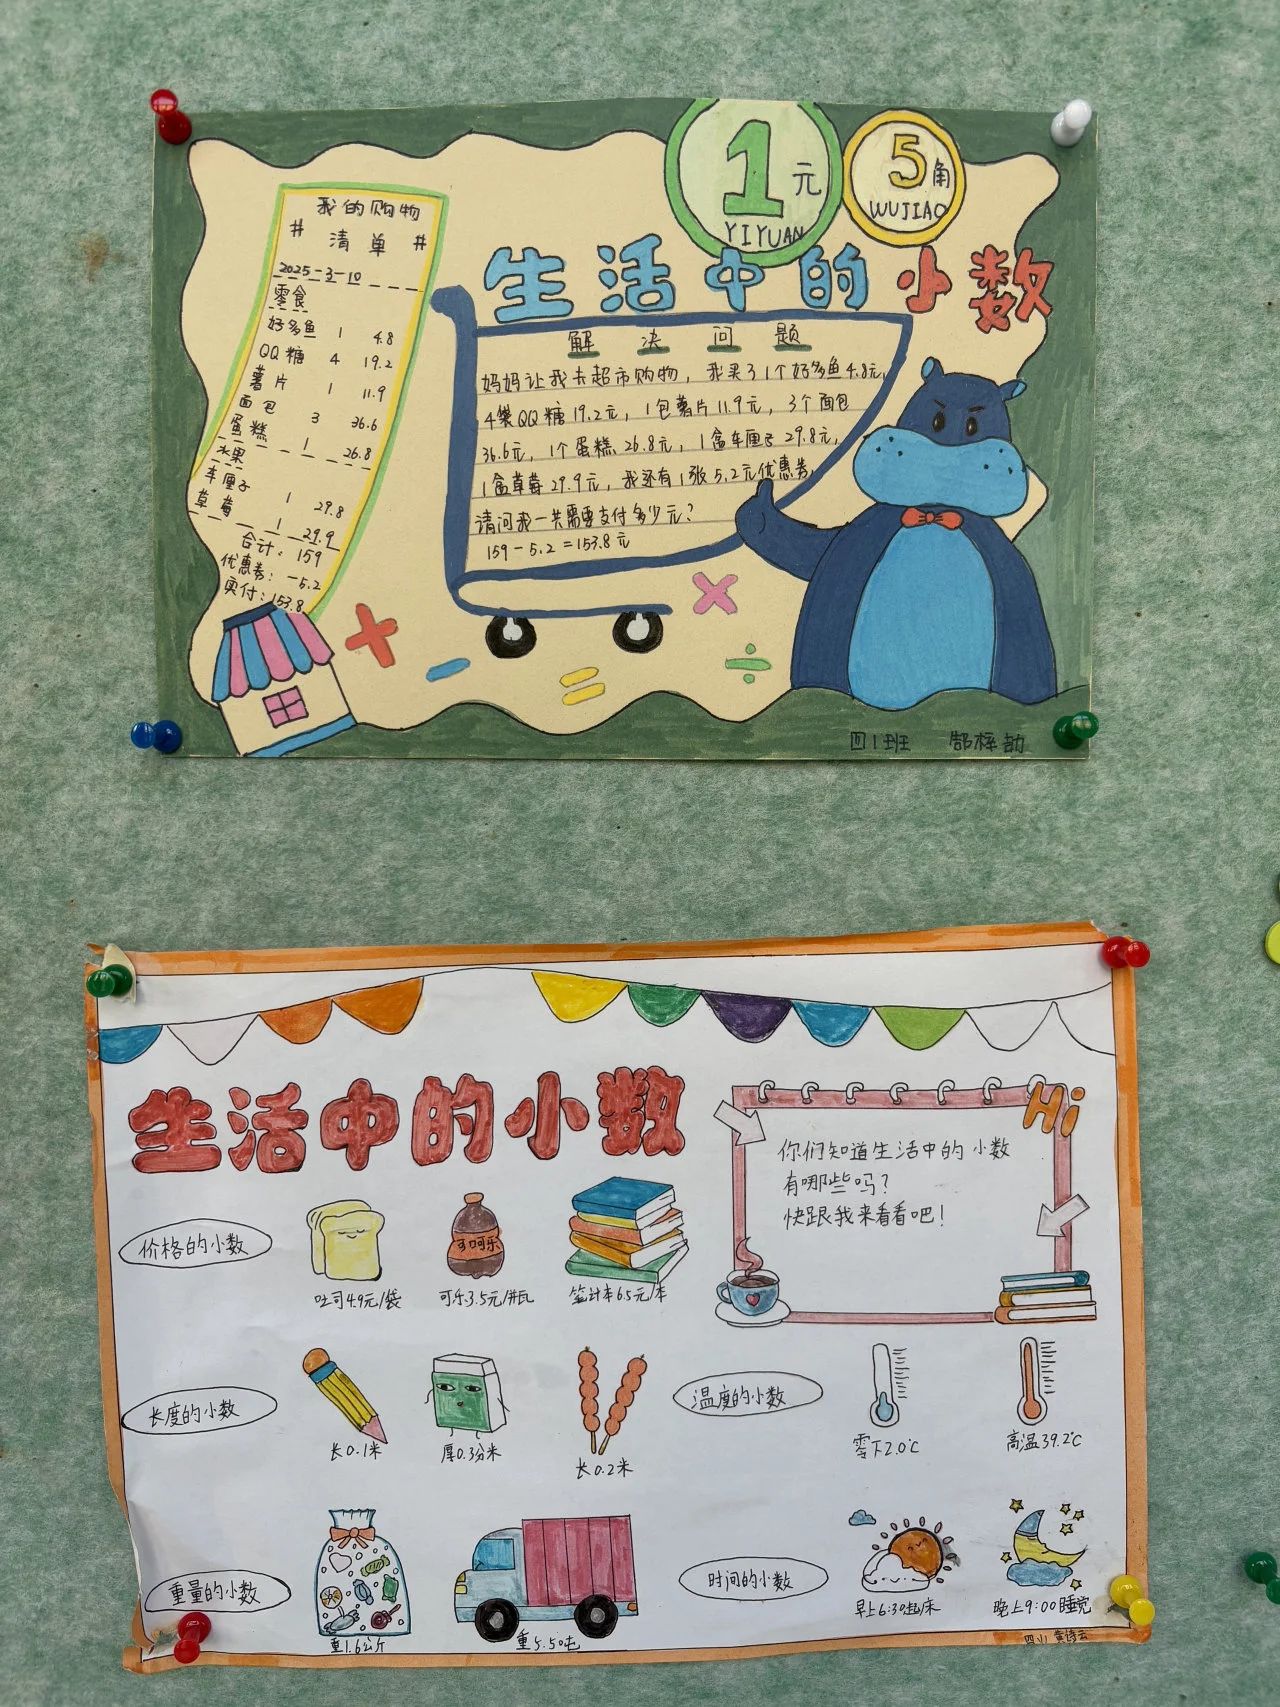 1元
YIYUAN
5角
WUJIAO
生活中的小数
我的购物
# 清单 #
2025-3-10
零食
好多鱼 1 4.8
QQ糖 4 19.2
薯片 1 11.9
面包 3 36.6
蛋糕 1 26.8
水果
车厘子 1 29.8
草莓 1 29.9
合计:159
优惠券:-5.2
实付:153.8
解决问题
妈妈让我去超市购物,我买了1个好多鱼4.8元,
4袋QQ糖19.2元,1包薯片11.9元,3个面包
36.6元,1个蛋糕26.8元,1盒车厘子29.8元,
1盒草莓29.9元,我还有1张5.2元优惠券,
请问我一共需要支付多少元?
159-5.2=153.8元
+ - = × ÷
四1班 郜梓劼
生活中的小数
Hi
你们知道生活中的小数
有哪些吗?
快跟我来看看吧!
价格的小数
可呵乐
吐司4.9元/袋
可乐3.5元/瓶
笔计本6.5元/本
长度的小数
长0.1米
厚0.3分米
长0.2米
温度的小数
零下2.0℃
高温39.2℃
重量的小数
重1.6公斤
重5.50吨
时间的小数
早上6:30起床
晚上9:00睡觉
四\1 黄诗云